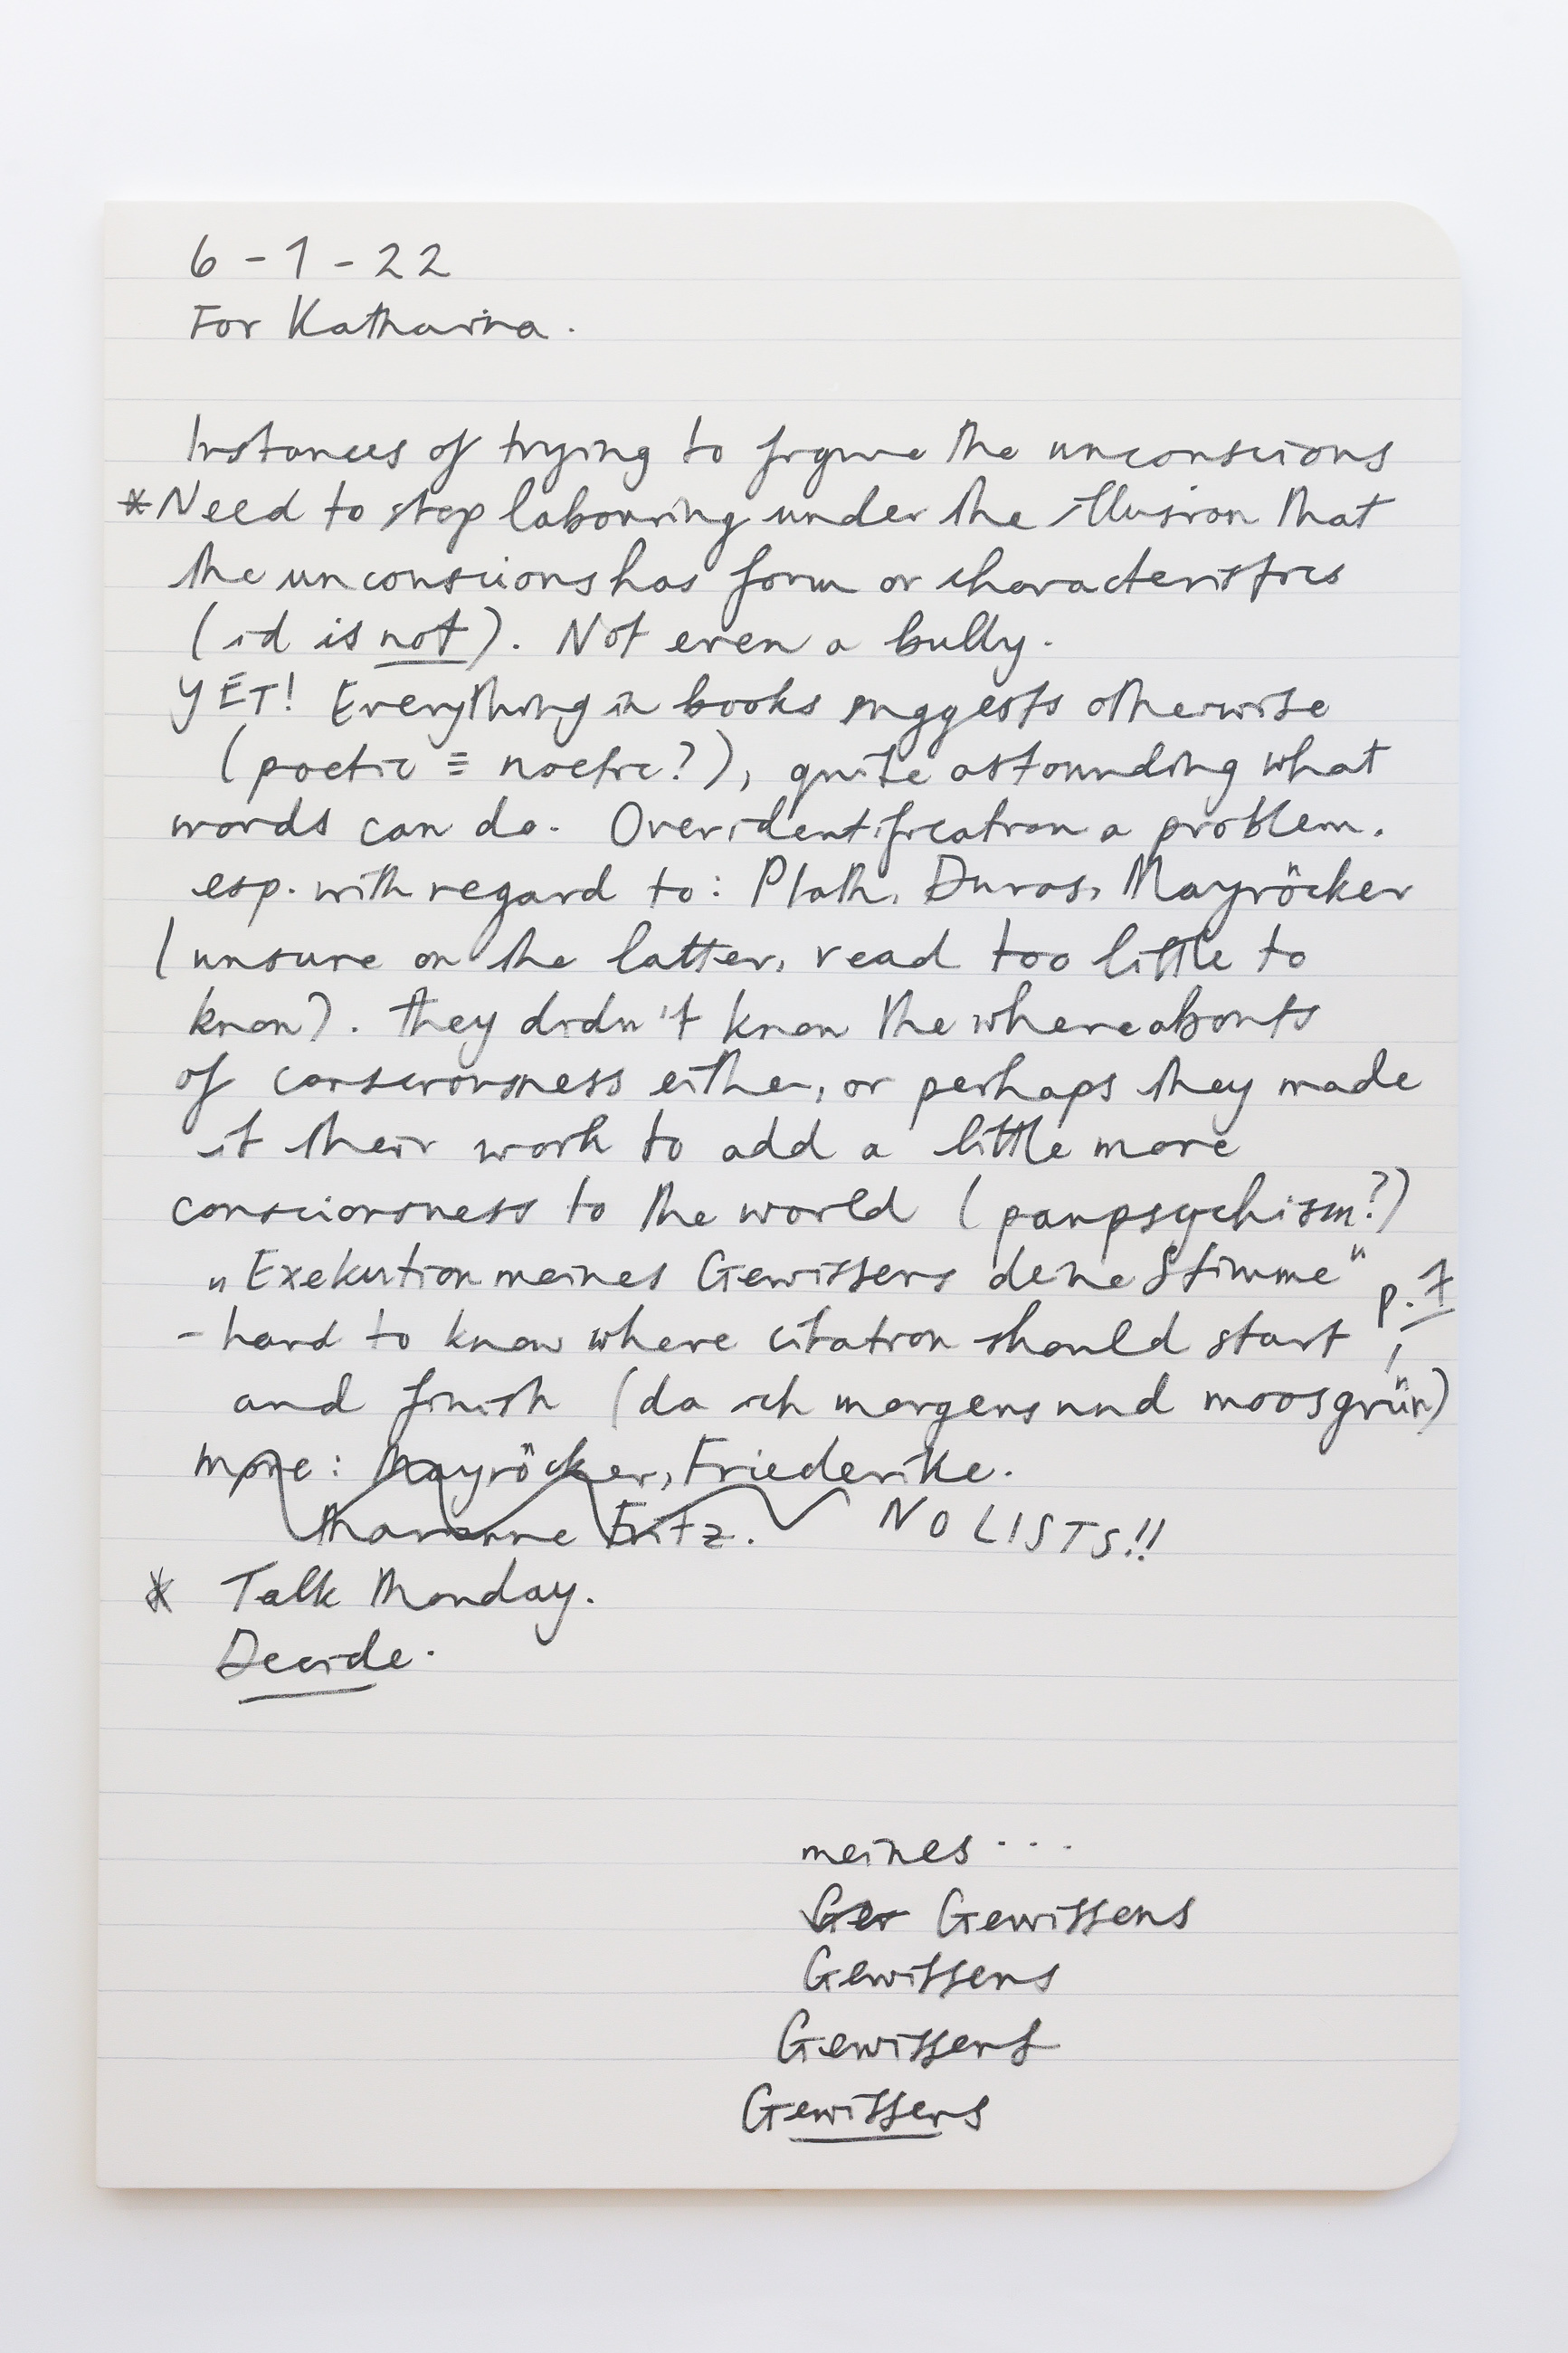 6-1-22
For Katharina.
Instances of trying to figure the unconscious
*Need to stop labouring under the illusion that
the unconscious has form or characteristics
(id is not). Not even a bully.
YET! Everything in books suggests otherwise
(poetic ≡ noetic?), quite astounding what
words can do. Overidentification a problem.
esp. with regard to: Plath, Duras, Mayröcker
(unsure on the latter, read too little to
know). They didn't know the whereabouts
of consciousness either, or perhaps they made
it their work to add a little more
consciousness to the world (panpsychism?)
„Exekution meines Gewissens deine Stimme“ p. 7
- hard to know where citation should start ,
and finish (da ich morgens und moosgrün)
more: Mayröcker, Friederike.
Marianne Fritz. NO LISTS!!
* Talk Monday.
Decide.
meines...
Ger Gewissens
Gewissens
Gewissens
Gewissens